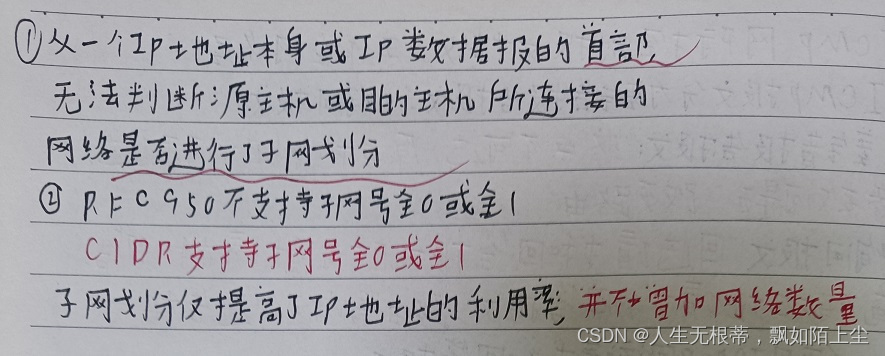 ①从一个IP地址本身或IP数据报的首部,
无法判断源主机或目的主机所连接的
网络是否进行了子网划分
② RFC950不支持子网号全0或全1
CIDR支持子网号全0或全1
子网划分仅提高了IP地址的利用率,并不增加网络数量
CSDN @人生无根蒂，飘如陌上尘